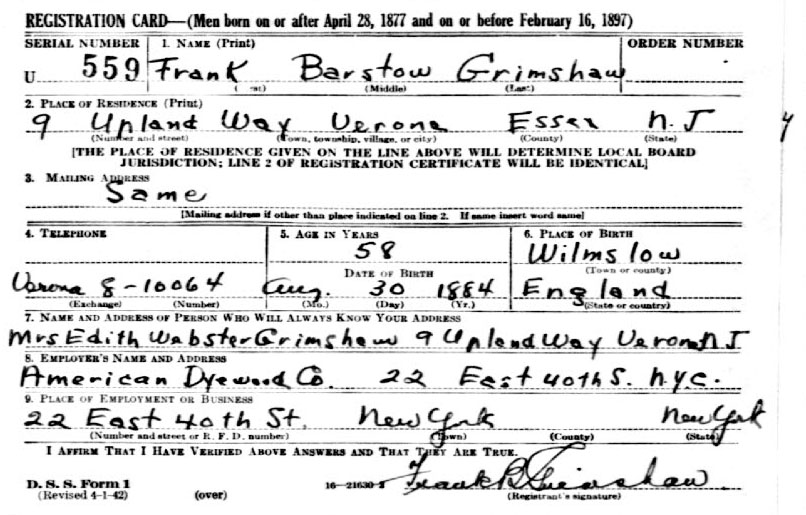 REGISTRATION CARD—(Men born on or after April 28, 1877 and on or before February 16, 1897)
SERIAL NUMBER 1. NAME (Print) ORDER NUMBER
U 559 Frank Barstow Grimshaw
(Middle) (Last)
2. PLACE OF RESIDENCE (Print)
9 Upland Way Verona Essex N.J
(Number and street) (Town, township, village, or city) (County) (State)
[THE PLACE OF RESIDENCE GIVEN ON THE LINE ABOVE WILL DETERMINE LOCAL BOARD
JURISDICTION; LINE 2 OF REGISTRATION CERTIFICATE WILL BE IDENTICAL]
3. MAILING ADDRESS
Same
[Mailing address if other than place indicated on line 2. If same insert word same]
4. TELEPHONE 5. AGE IN YEARS 6. PLACE OF BIRTH
58 Wilmslow
DATE OF BIRTH (Town or county)
Verona 8-10064 Aug. 30 1884 England
(Exchange) (Number) (Mo.) (Day) (Yr.) (State or country)
7. NAME AND ADDRESS OF PERSON WHO WILL ALWAYS KNOW YOUR ADDRESS
Mrs Edith Webster Grimshaw 9 Upland Way Verona N.J
8. EMPLOYER'S NAME AND ADDRESS
American Dyewood Co. 22 East 40th S. N.Y.C.
9. PLACE OF EMPLOYMENT OR BUSINESS
22 East 40th St. New York New York
(Number and street or R. F. D. number) (Town) (County) (State)
I AFFIRM THAT I HAVE VERIFIED ABOVE ANSWERS AND THAT THEY ARE TRUE.
D. S. S. Form 1 16—21630-2 Frank B Grimshaw
(Revised 4-1-42) (over) (Registrant's signature)